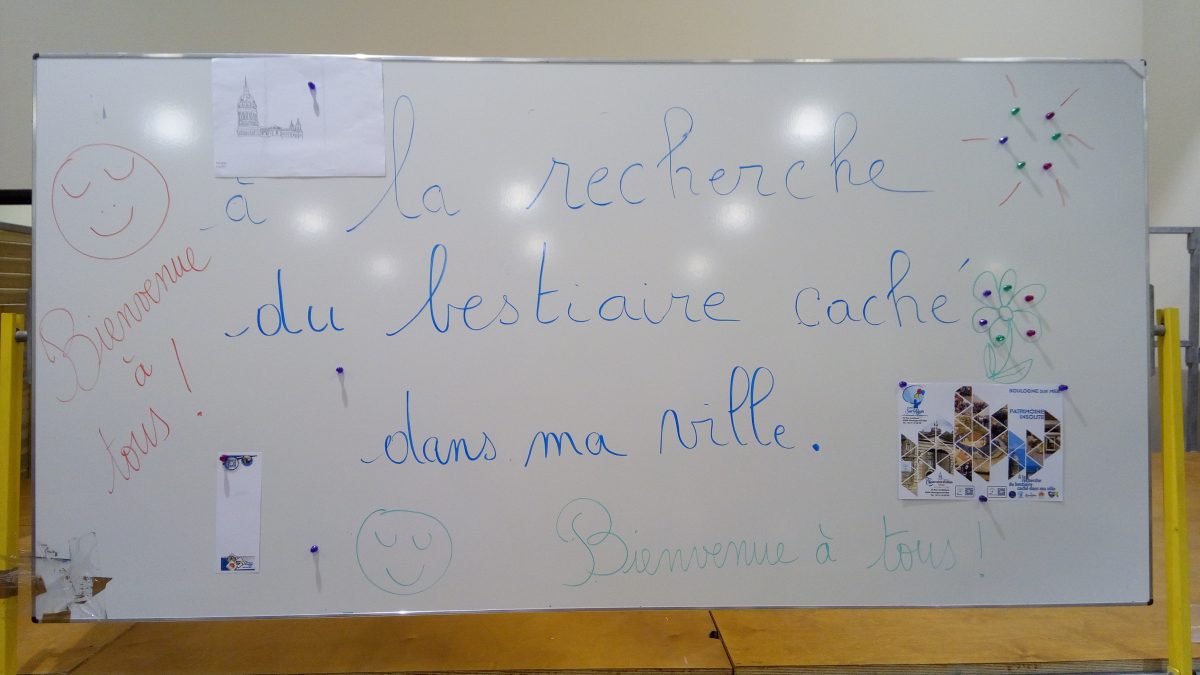 à la recherche
du bestiaire caché
dans ma ville.
Bienvenue
à
tous !
Bienvenue à tous !
BOULOGNE SUR MER
PATRIMOINE
INSOLITE
À la
recherche
du bestiaire
caché dans ma ville